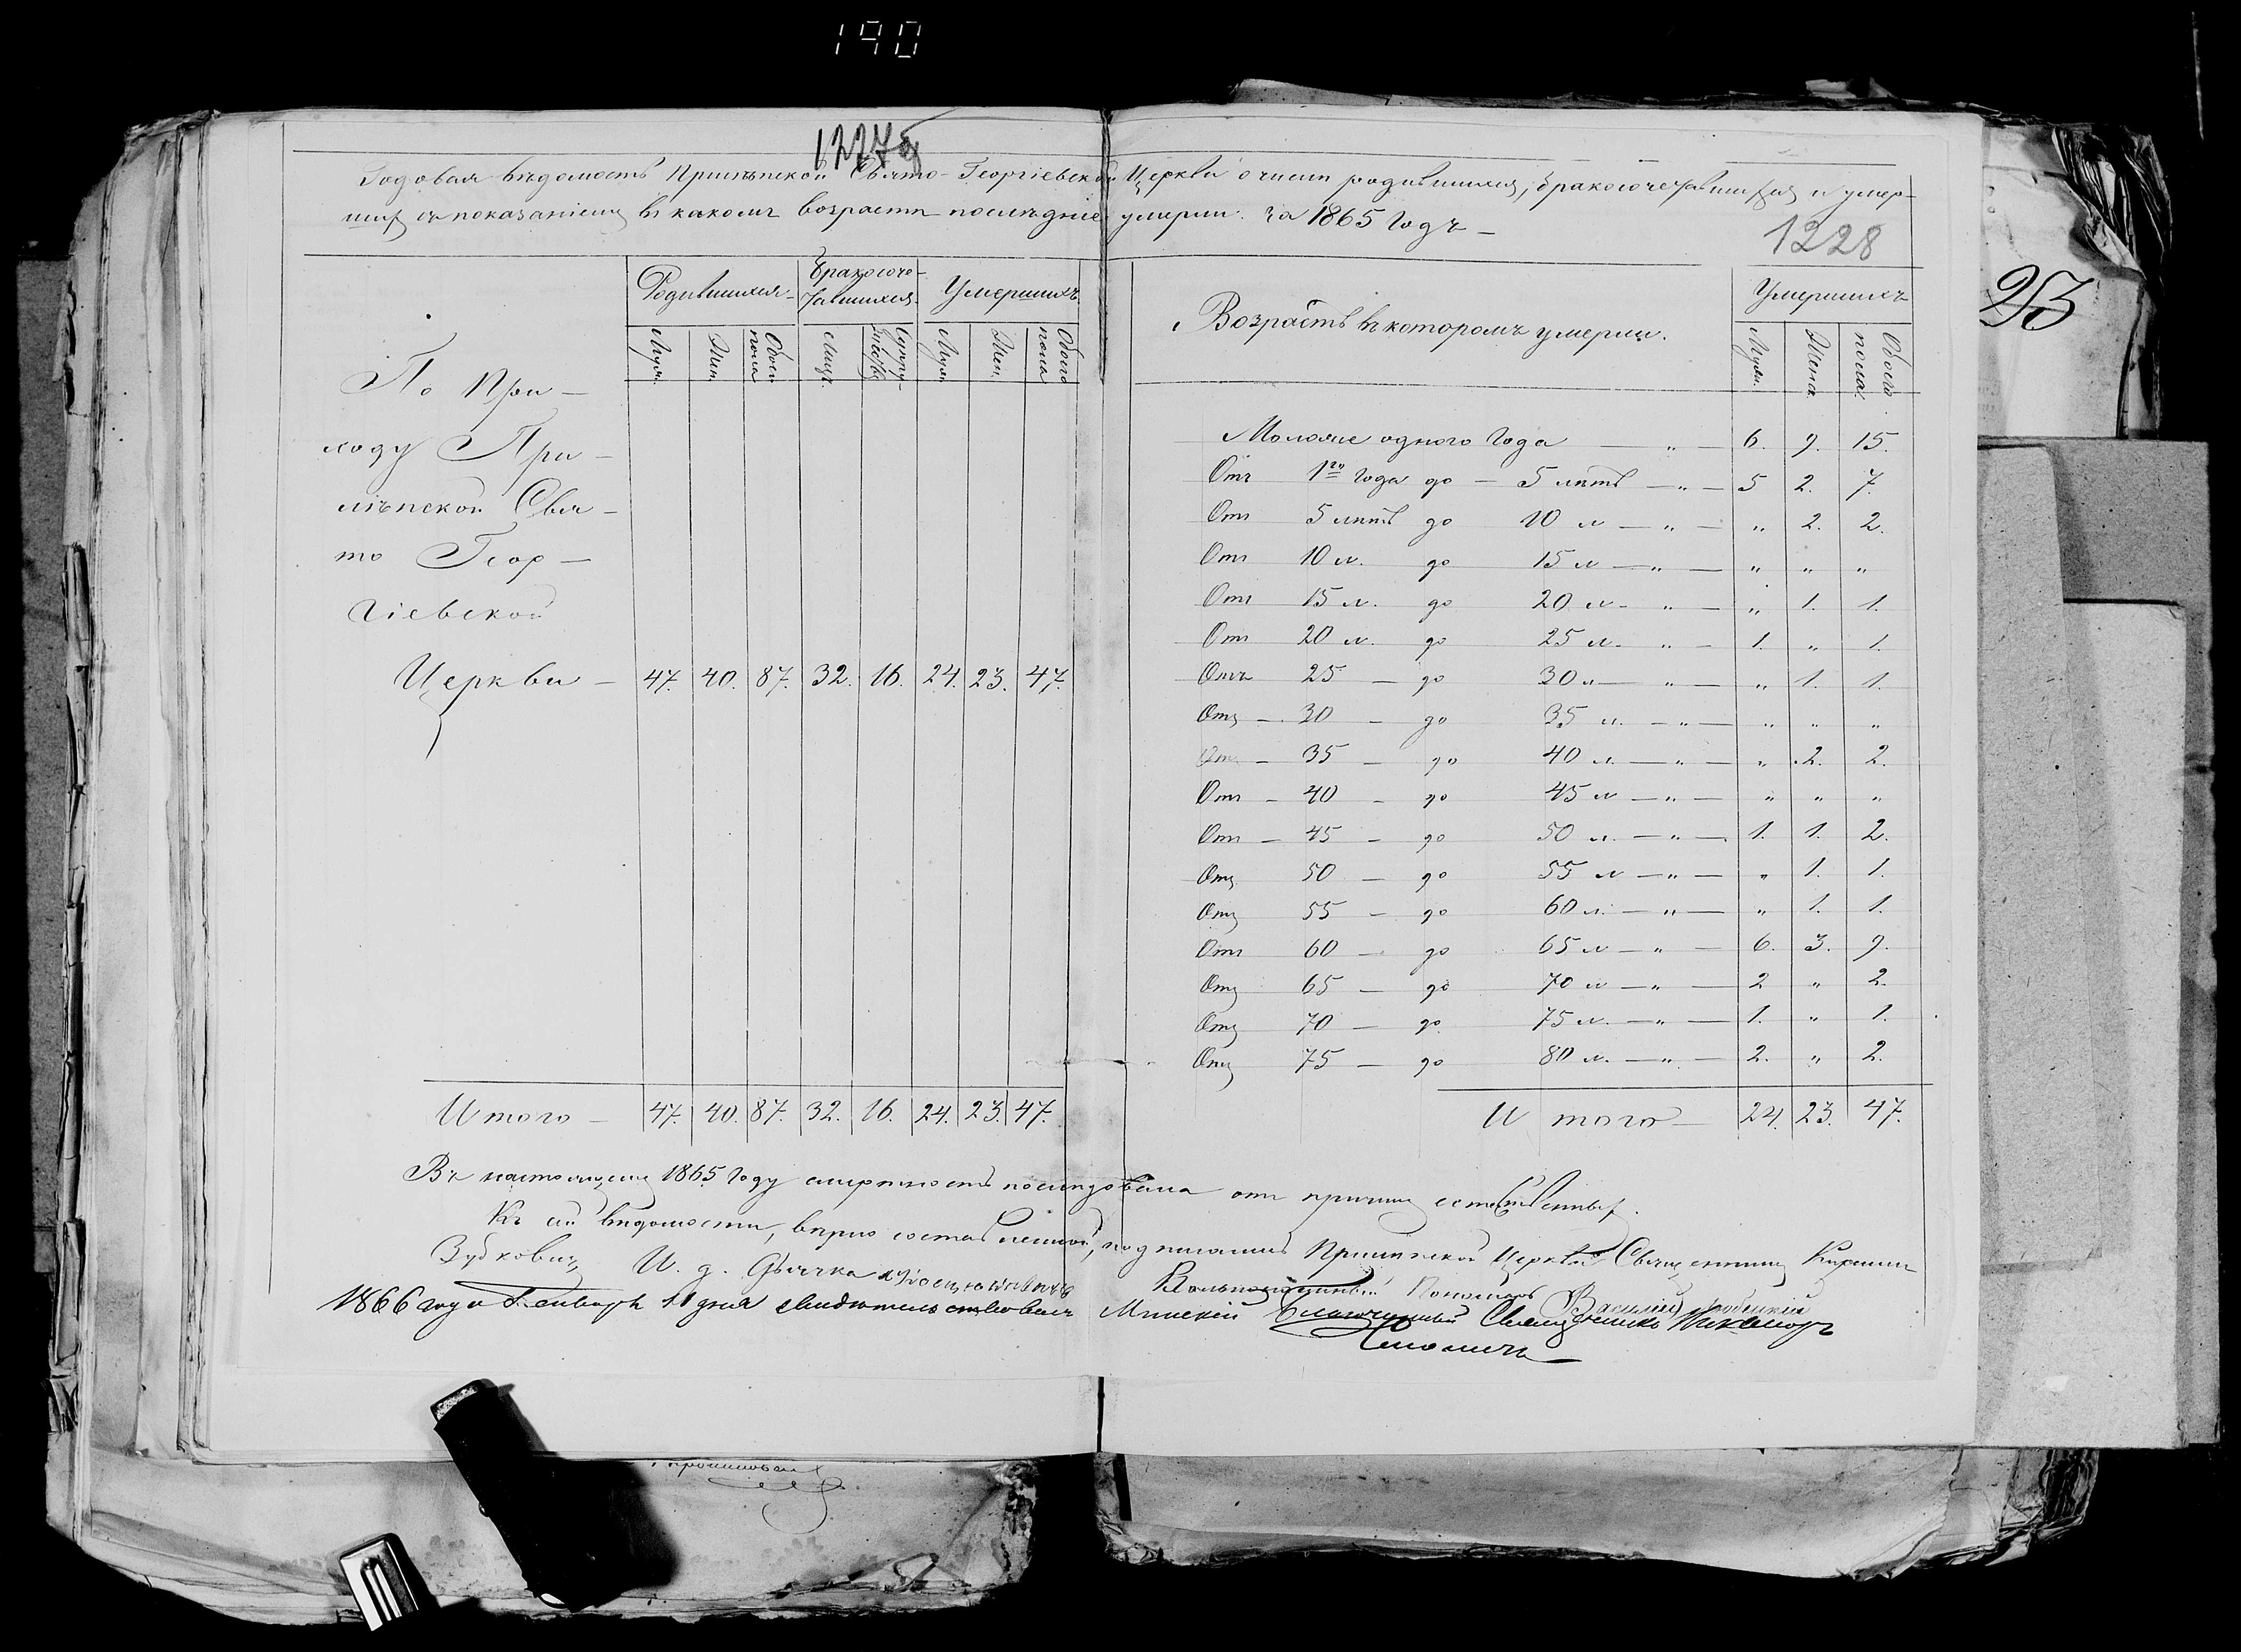 190
1227 об
Годовая вѣдомость Прилѣпской Свято-Георгіевской Церкви о числѣ родившихся, бракосочетавшихся и умер-
ших съ показаніемъ въ какомъ возрастѣ послѣдніе умерли за 1865 годъ —
1228
253
Родившихся Бракосоче-тавшихся Умершихъ
Муж. Жен. Обоего пола Лицъ Супружествъ Муж. Жен. Обоего пола
По При-
ходу При-
лѣпской Свя-
то Геор-
гіевской
Церкви — 47. 40. 87. 32. 16. 24. 23. 47.
Итого — 47. 40. 87. 32. 16. 24. 23. 47.
Возрастъ въ которомъ умерли. Умершихъ
Муж. Женск. Обоего пола.
Моложе одного года — „ — 6. 9. 15.
Отъ 1го года до — 5 лѣтъ — „ — 5 2. 7.
Отъ 5 лѣтъ до 10 л — „ — „ 2. 2.
Отъ 10 л. до 15 л — „ — „ „ „
Отъ 15 л. до 20 л — „ — „ 1. 1.
Отъ 20 л. до 25 л. „ — 1. „ 1.
Отъ 25 — до 30 л — „ — „ 1. 1.
Отъ — 30 — до 35 л. — „ — „ „ „
Отъ — 35 — до 40 л. — „ — „ 2. 2.
Отъ — 40 — до 45 л — „ — „ „ „
Отъ — 45 — до 50 л. — „ — 1. 1. 2.
Отъ 50 — до 55 л — „ — „ 1. 1.
Отъ 55 — до 60 л. — „ — „ 1. 1.
Отъ 60 — до 65 л — „ — 6. 3. 9.
Отъ 65 — до 70 л — „ — 2 „ 2.
Отъ 70 — до 75 л. — „ — 1. „ 1.
Отъ 75 — до 80 л. — „ — 2. „ 2.
Итого — 24. 23. 47.
Въ настоящемъ 1865 году смертность послѣдовала отъ причинъ естественныхъ.
Къ сей вѣдомости, вѣрно составленной, подписались Прилѣпской Церкви Священникъ
Зубковичъ И. д. Дьячка Пономарь Василій
1866 года Генваря 11 дня свидетельствовалъ Минскій Благочинный Священникъ Никаноръ
Смоличъ